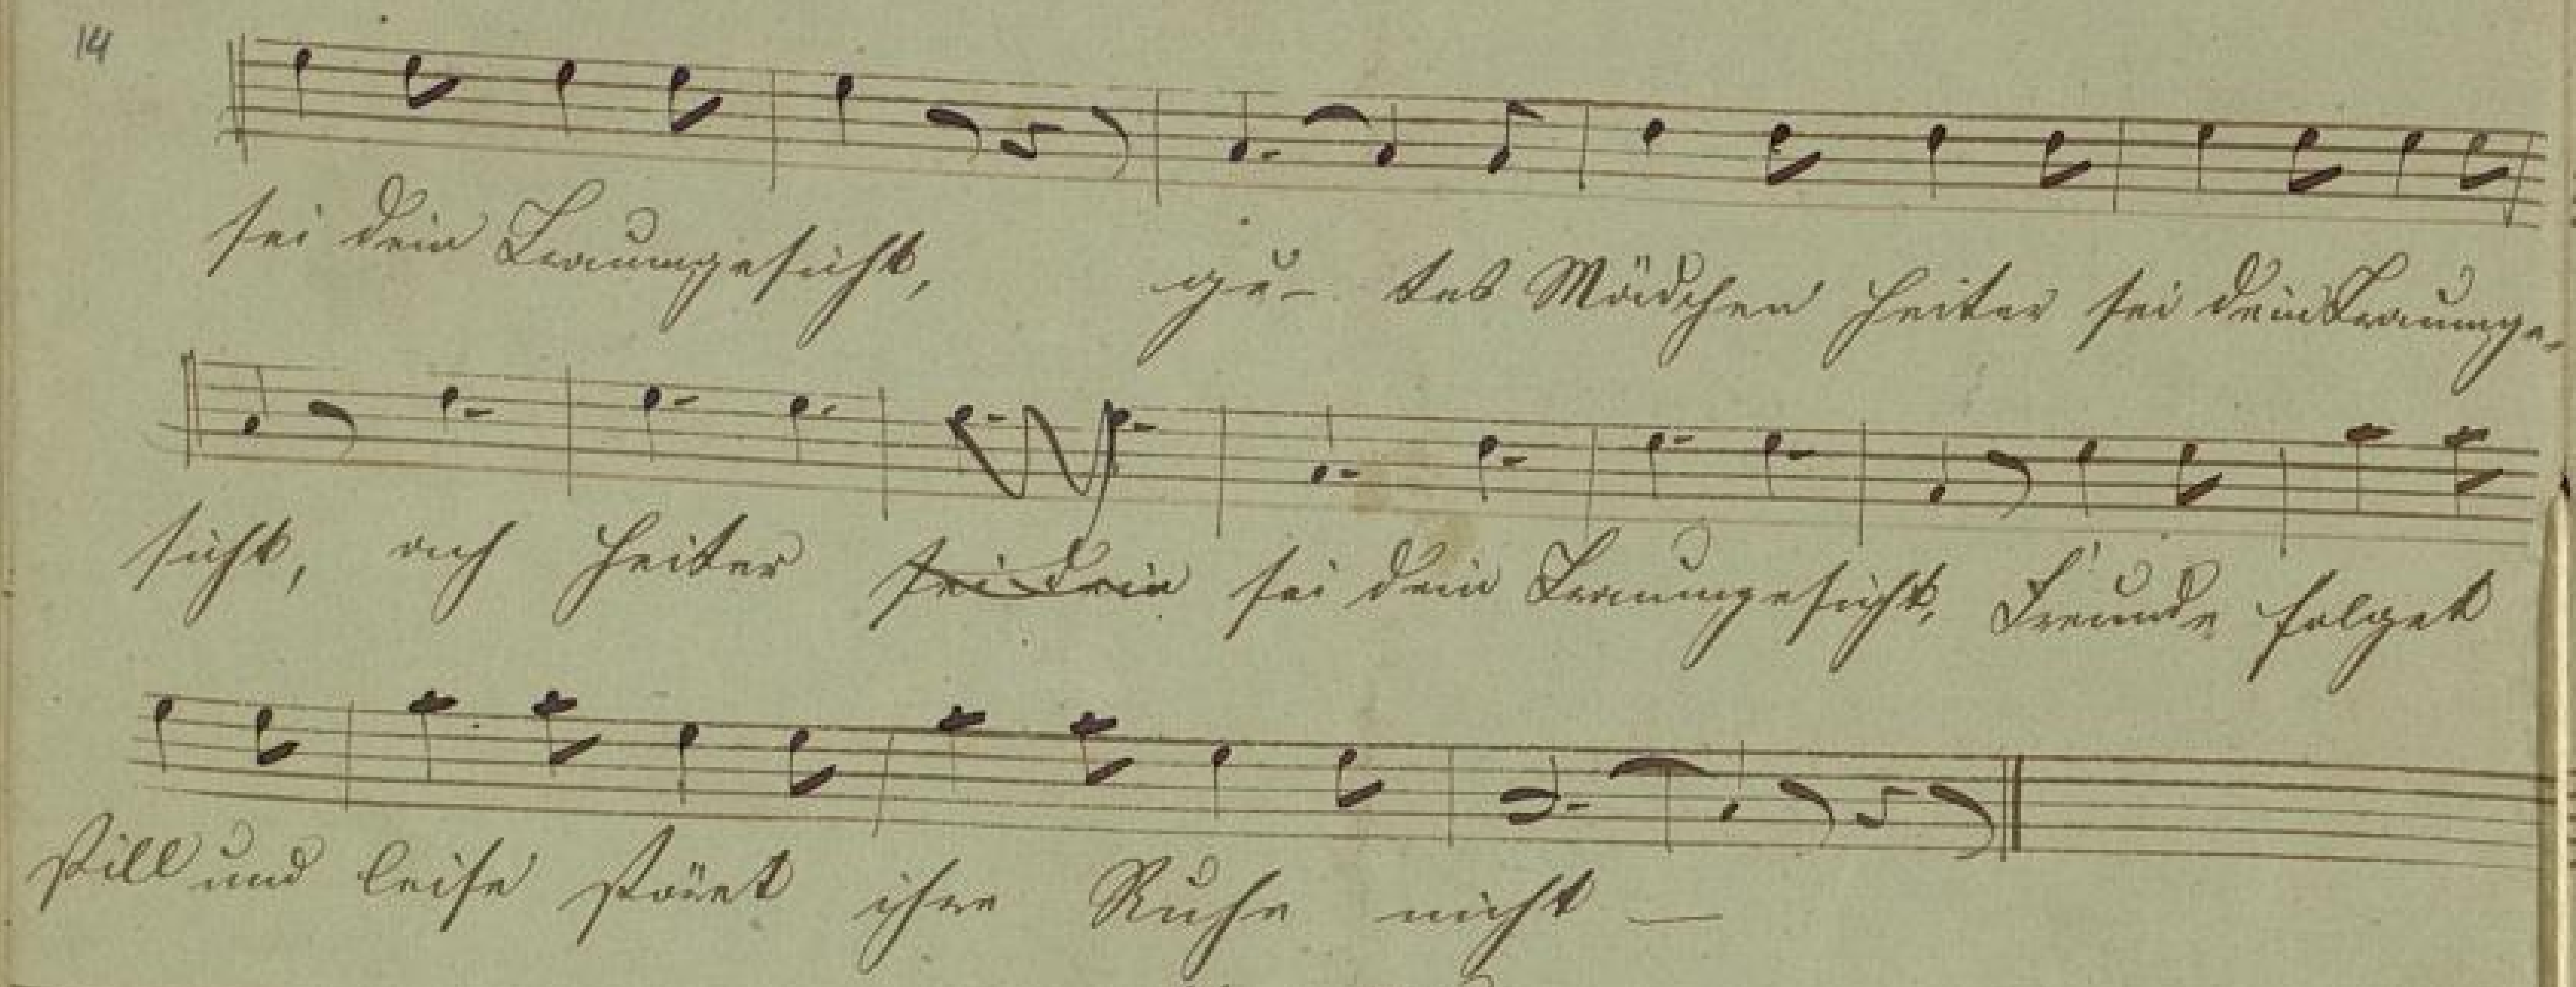 14
sei dein Traumgesicht, gu- tes Mädchen heiter sei dein Traumge-
sicht, ach heiter sei dein sei dein Traumgesicht, Freunde folget
still und leise störet ihre Ruhe nicht —